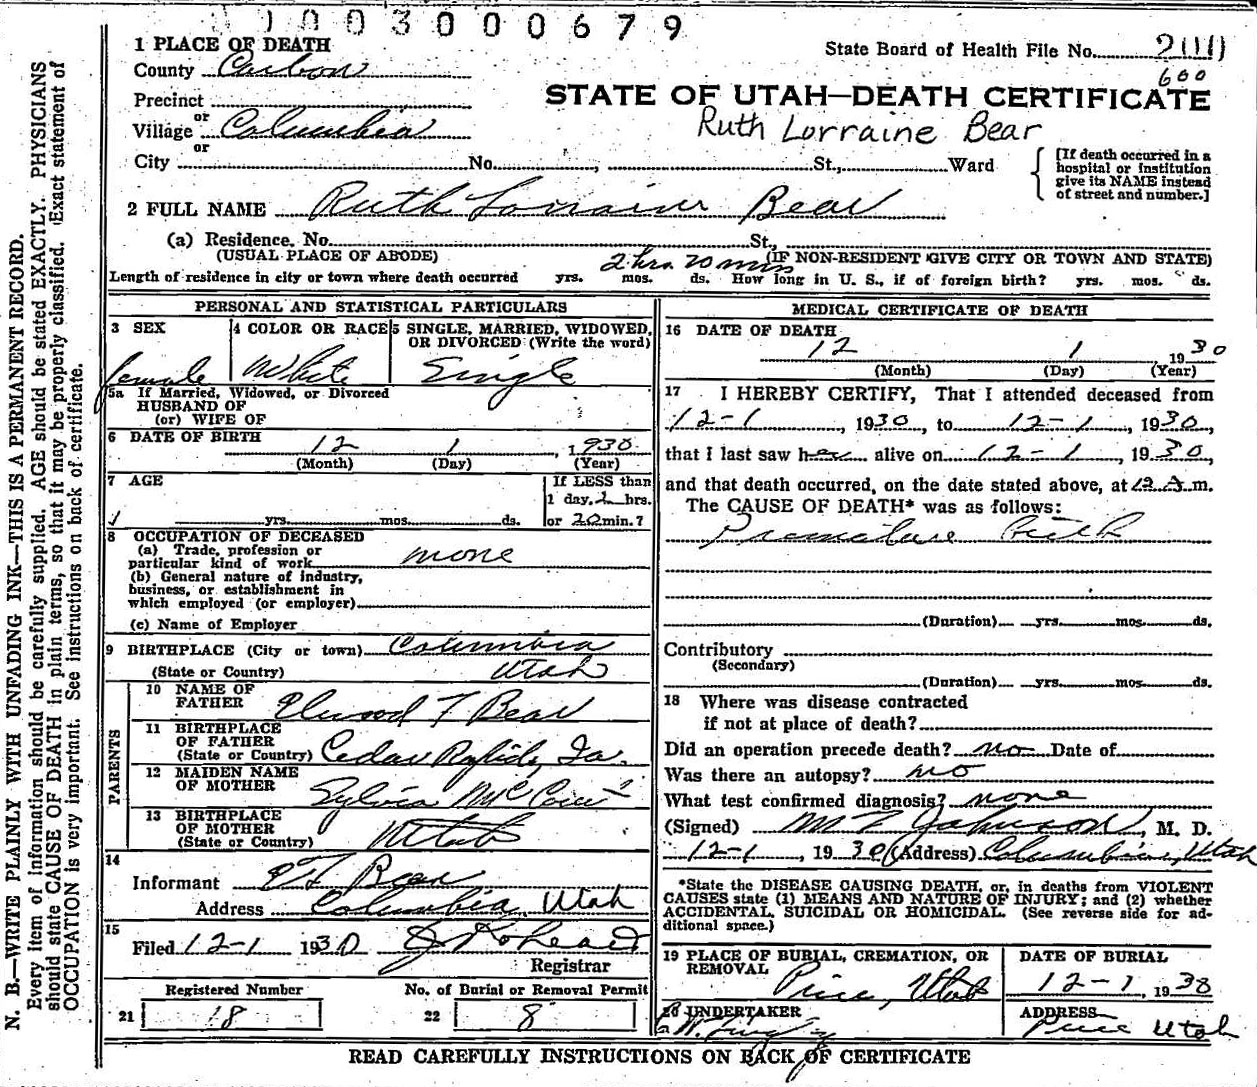 0003000679
1 PLACE OF DEATH
State Board of Health File No.
600
County Carbon
STATE OF UTAH—DEATH CERTIFICATE
Precinct
or
Village Columbia
Ruth Lorraine Bear
or
City No. , St., Ward
[If death occurred in a
hospital or institution
give its NAME instead
of street and number.]
2 FULL NAME Ruth Lorraine Bear
(a) Residence. No. St.,
(USUAL PLACE OF ABODE) (IF NON-RESIDENT GIVE CITY OR TOWN AND STATE)
2 hrs. 20 mins
Length of residence in city or town where death occurred yrs. mos. ds. How long in U. S., if of foreign birth? yrs. mos. ds.
PERSONAL AND STATISTICAL PARTICULARS
3 SEX
female
4 COLOR OR RACE
White
5 SINGLE, MARRIED, WIDOWED,
OR DIVORCED (Write the word)
Single
5a If Married, Widowed, or Divorced
HUSBAND OF
(or) WIFE OF
6 DATE OF BIRTH 12 1 , 1930
(Month) (Day) (Year)
7 AGE
If LESS than
1 day, 2 hrs.
yrs. mos. ds. or 20 min.?
8 OCCUPATION OF DECEASED
(a) Trade, profession or
particular kind of work none
(b) General nature of industry,
business, or establishment in
which employed (or employer)
(c) Name of Employer
9 BIRTHPLACE (City or town) Columbia
(State or Country) Utah
PARENTS
10 NAME OF
FATHER Elwood F Bear
11 BIRTHPLACE
OF FATHER
(State or Country) Cedar Rapids, Ia.
12 MAIDEN NAME
OF MOTHER Sylvia
13 BIRTHPLACE
OF MOTHER
(State or Country) Utah
14
Informant E F Bear
Address Columbia, Utah
15
Filed 12-1 1930
Registrar
Registered Number No. of Burial or Removal Permit
21 18 22 8
MEDICAL CERTIFICATE OF DEATH
16 DATE OF DEATH
12 1 1930
(Month) (Day) (Year)
17 I HEREBY CERTIFY, That I attended deceased from
12-1 , 1930, to 12-1 , 1930,
that I last saw her alive on 12-1 , 1930,
and that death occurred, on the date stated above, at 12 A m.
The CAUSE OF DEATH* was as follows:
Premature birth
(Duration) yrs. mos. ds.
Contributory
(Secondary)
(Duration) yrs. mos. ds.
18 Where was disease contracted
if not at place of death?
Did an operation precede death? no Date of
Was there an autopsy? no
What test confirmed diagnosis? none
(Signed) Johnson, M. D.
12-1 , 1930 (Address) Columbia, Utah
*State the DISEASE CAUSING DEATH, or, in deaths from VIOLENT
CAUSES state (1) MEANS AND NATURE OF INJURY; and (2) whether
ACCIDENTAL, SUICIDAL OR HOMICIDAL. (See reverse side for ad-
ditional space.)
19 PLACE OF BURIAL, CREMATION, OR
REMOVAL Price, Utah
DATE OF BURIAL
12-1 , 1930
20 UNDERTAKER
ADDRESS
Price Utah
READ CAREFULLY INSTRUCTIONS ON BACK OF CERTIFICATE
N. B.—WRITE PLAINLY WITH UNFADING INK—THIS IS A PERMANENT RECORD.
Every item of information should be carefully supplied. AGE should be stated EXACTLY. PHYSICIANS
should state CAUSE OF DEATH in plain terms, so that it may be properly classified. Exact statement of
OCCUPATION is very important. See instructions on back of certificate.